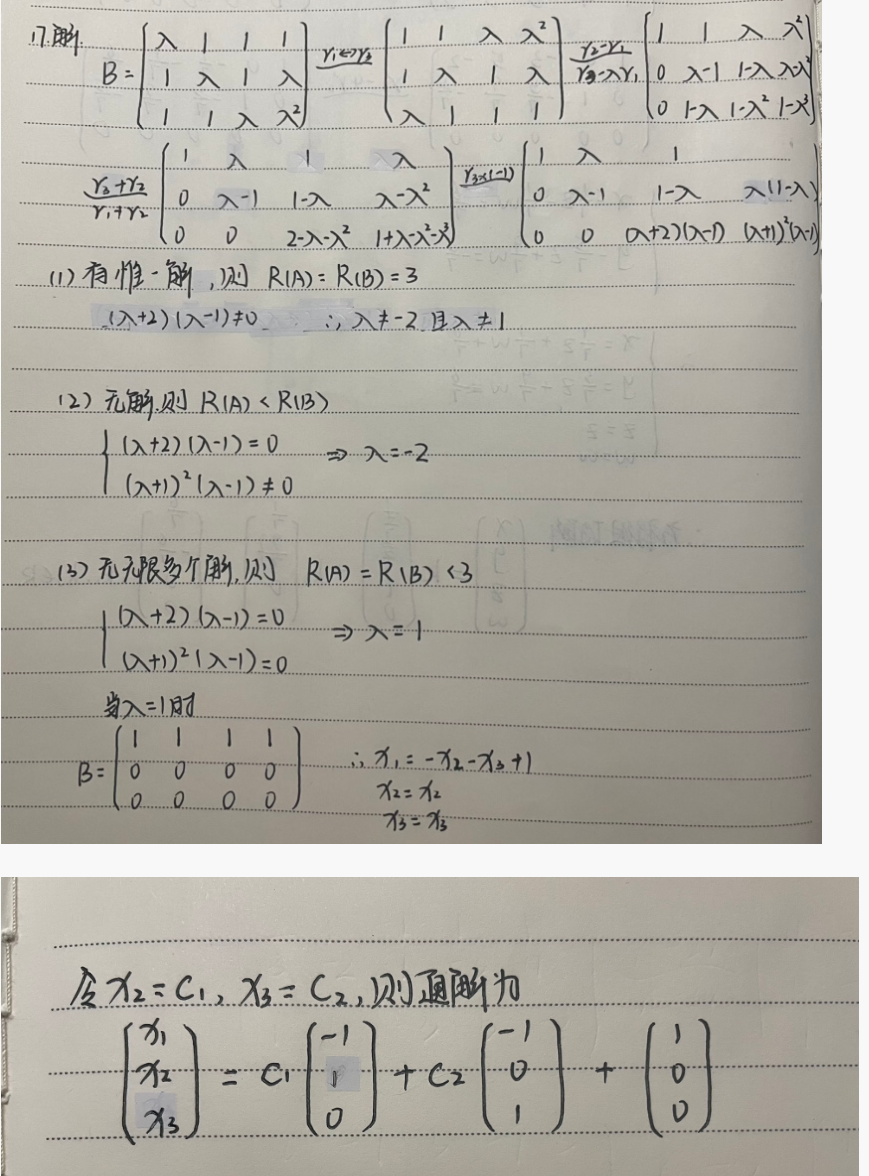 17.解.
B = (λ 1 1 1; 1 λ 1 λ; 1 1 λ λ²) r₁↔r₃ (1 1 λ λ²; 1 λ 1 λ; λ 1 1 1) r₂-r₁ r₃-λr₁ (1 1 λ λ²; 0 λ-1 1-λ λ-λ²; 0 1-λ 1-λ² 1-λ³)
r₃+r₂ r₁+r₂ (1 λ 1 λ; 0 λ-1 1-λ λ-λ²; 0 0 2-λ-λ² 1+λ-λ²-λ³) r₃×(-1) (1 λ 1; 0 λ-1 1-λ λ(1-λ); 0 0 (λ+2)(λ-1) (λ+1)²(λ-1))
(1) 有惟一解,则 R(A)=R(B)=3
(λ+2)(λ-1)≠0 ∴ λ≠-2 且λ≠1
(2) 无解.则 R(A)<R(B)
{ (λ+2)(λ-1)=0 ⇒ λ=-2
(λ+1)²(λ-1)≠0
(3) 无无限多个解,则 R(A)=R(B)<3
{ (λ+2)(λ-1)=0 ⇒ λ=1
(λ+1)²(λ-1)=0
当λ=1时
B = (1 1 1 1; 0 0 0 0; 0 0 0 0) ∴ x₁=-x₂-x₃+1
x₂=x₂
x₃=x₃
令x₂=C₁, x₃=C₂,则通解为
(x₁; x₂; x₃) = C₁ (-1; 1; 0) + C₂ (-1; 0; 1) + (1; 0; 0)